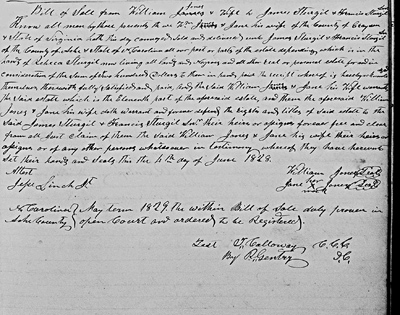 Bill of Sale from William Jones & Wife to James Sturgil & Francis Sturgil
Know all men by these presents that we Wm Jones & Jane his wife of the County of Grayson
& State of Virginia hath this day conveyed Sold and delivered unto James Sturgil & Francis Sturgil
of the County of Ashe & State of N Carolina all our part or parts of the estate depending, which is in the
hands of Rebeca Sturgil now living all lands and Negroes and all other real or personal estate for and in
consideration of the Sum of one hundred Dollars to them in hand paid the receipt whereof is hereby
themselves herewith fully satisfied and paid, and the said William Jones & Jane his Wife warrants
the Said estate which is the Eleventh part of the aforesaid estate, and them the aforesaid William
Jones & Jane his wife doth warrant and forever defend the right and titles of Said estate to the
Said James Sturgil & Francis Sturgil their heirs or assigns forever free and clear
from all but Claim of them the Said William Jones & Jane his wife their heirs or
assigns or of any other persons whatsoever in testimony whereof they have hereunto
Set their hands and Seals this the 4th day of June 1828.
Attest William Jones Seal
Jesse Jr Jane her mark Jones Seal
N Carolina May term 1829 the within Bill of Sale duly proven in
Ashe County open Court and ordered to be Registered.
Test T. Calloway C.C.C
By R. Gentry D.C.